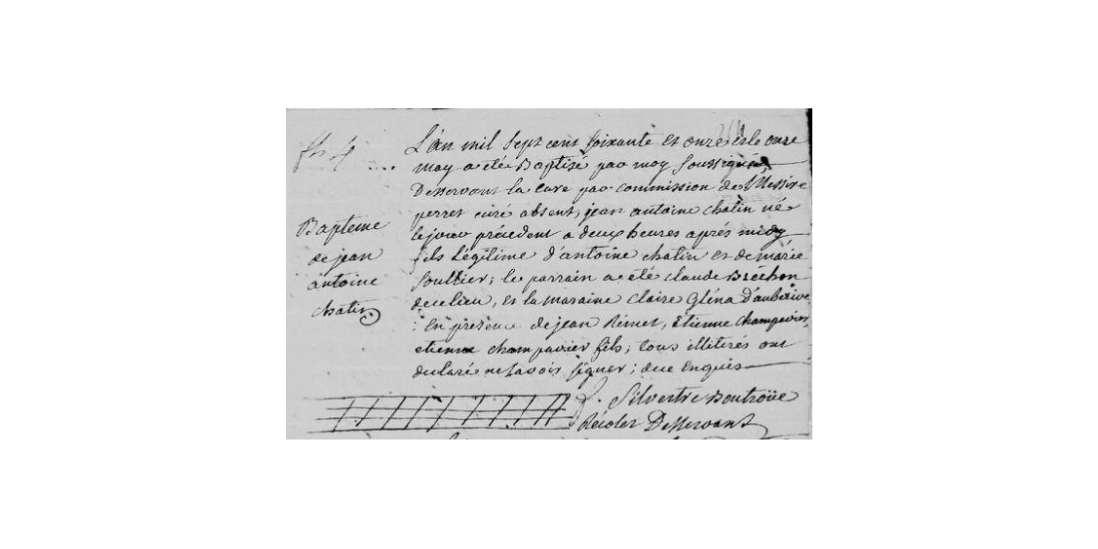 L'an mil sept cent soixante et onze et le onze
may a été Baptisé par moy soussigné
Desservant la cure par commission de Messire
perret curé absent, jean antoine chatin né
le jour précedent a deux heures aprés midy
fils légitime d'antoine chatin et de marie
Soullier; le parrain a été claude Bréchon
de ce lieu, et la maraine claire Gléna d'auberive
: en presence de jean Rimet, Etienne champavier,
etienne champavier fils; tous illiterés ont
declaré ne savoir signer; de ce enquis
f. Silvestre Boutroüe
Récolet Desservant
Bapteme
de jean
antoine
chatin